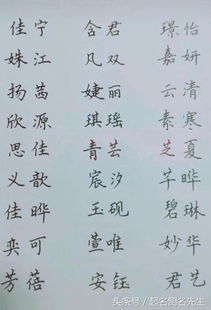 佳宁 含君 璟怡
姝江 凡双 嘉妍
扬茜 婕丽 云清
欣源 琪瑶 素寒
思佳 青芸 芝夏
义歆 宸汐 芊晔
佳晔 玉砚 碧琳
奕可 萱唯 妙华
芳蓓 安钰 君艺
头条号/起名测名先生